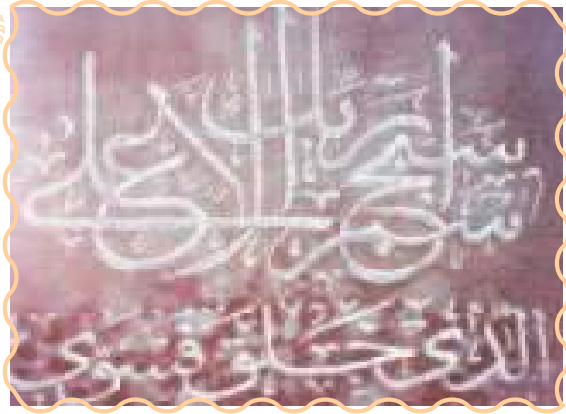 سبح اسم ربك الأعلى
الذي خلق فسوى